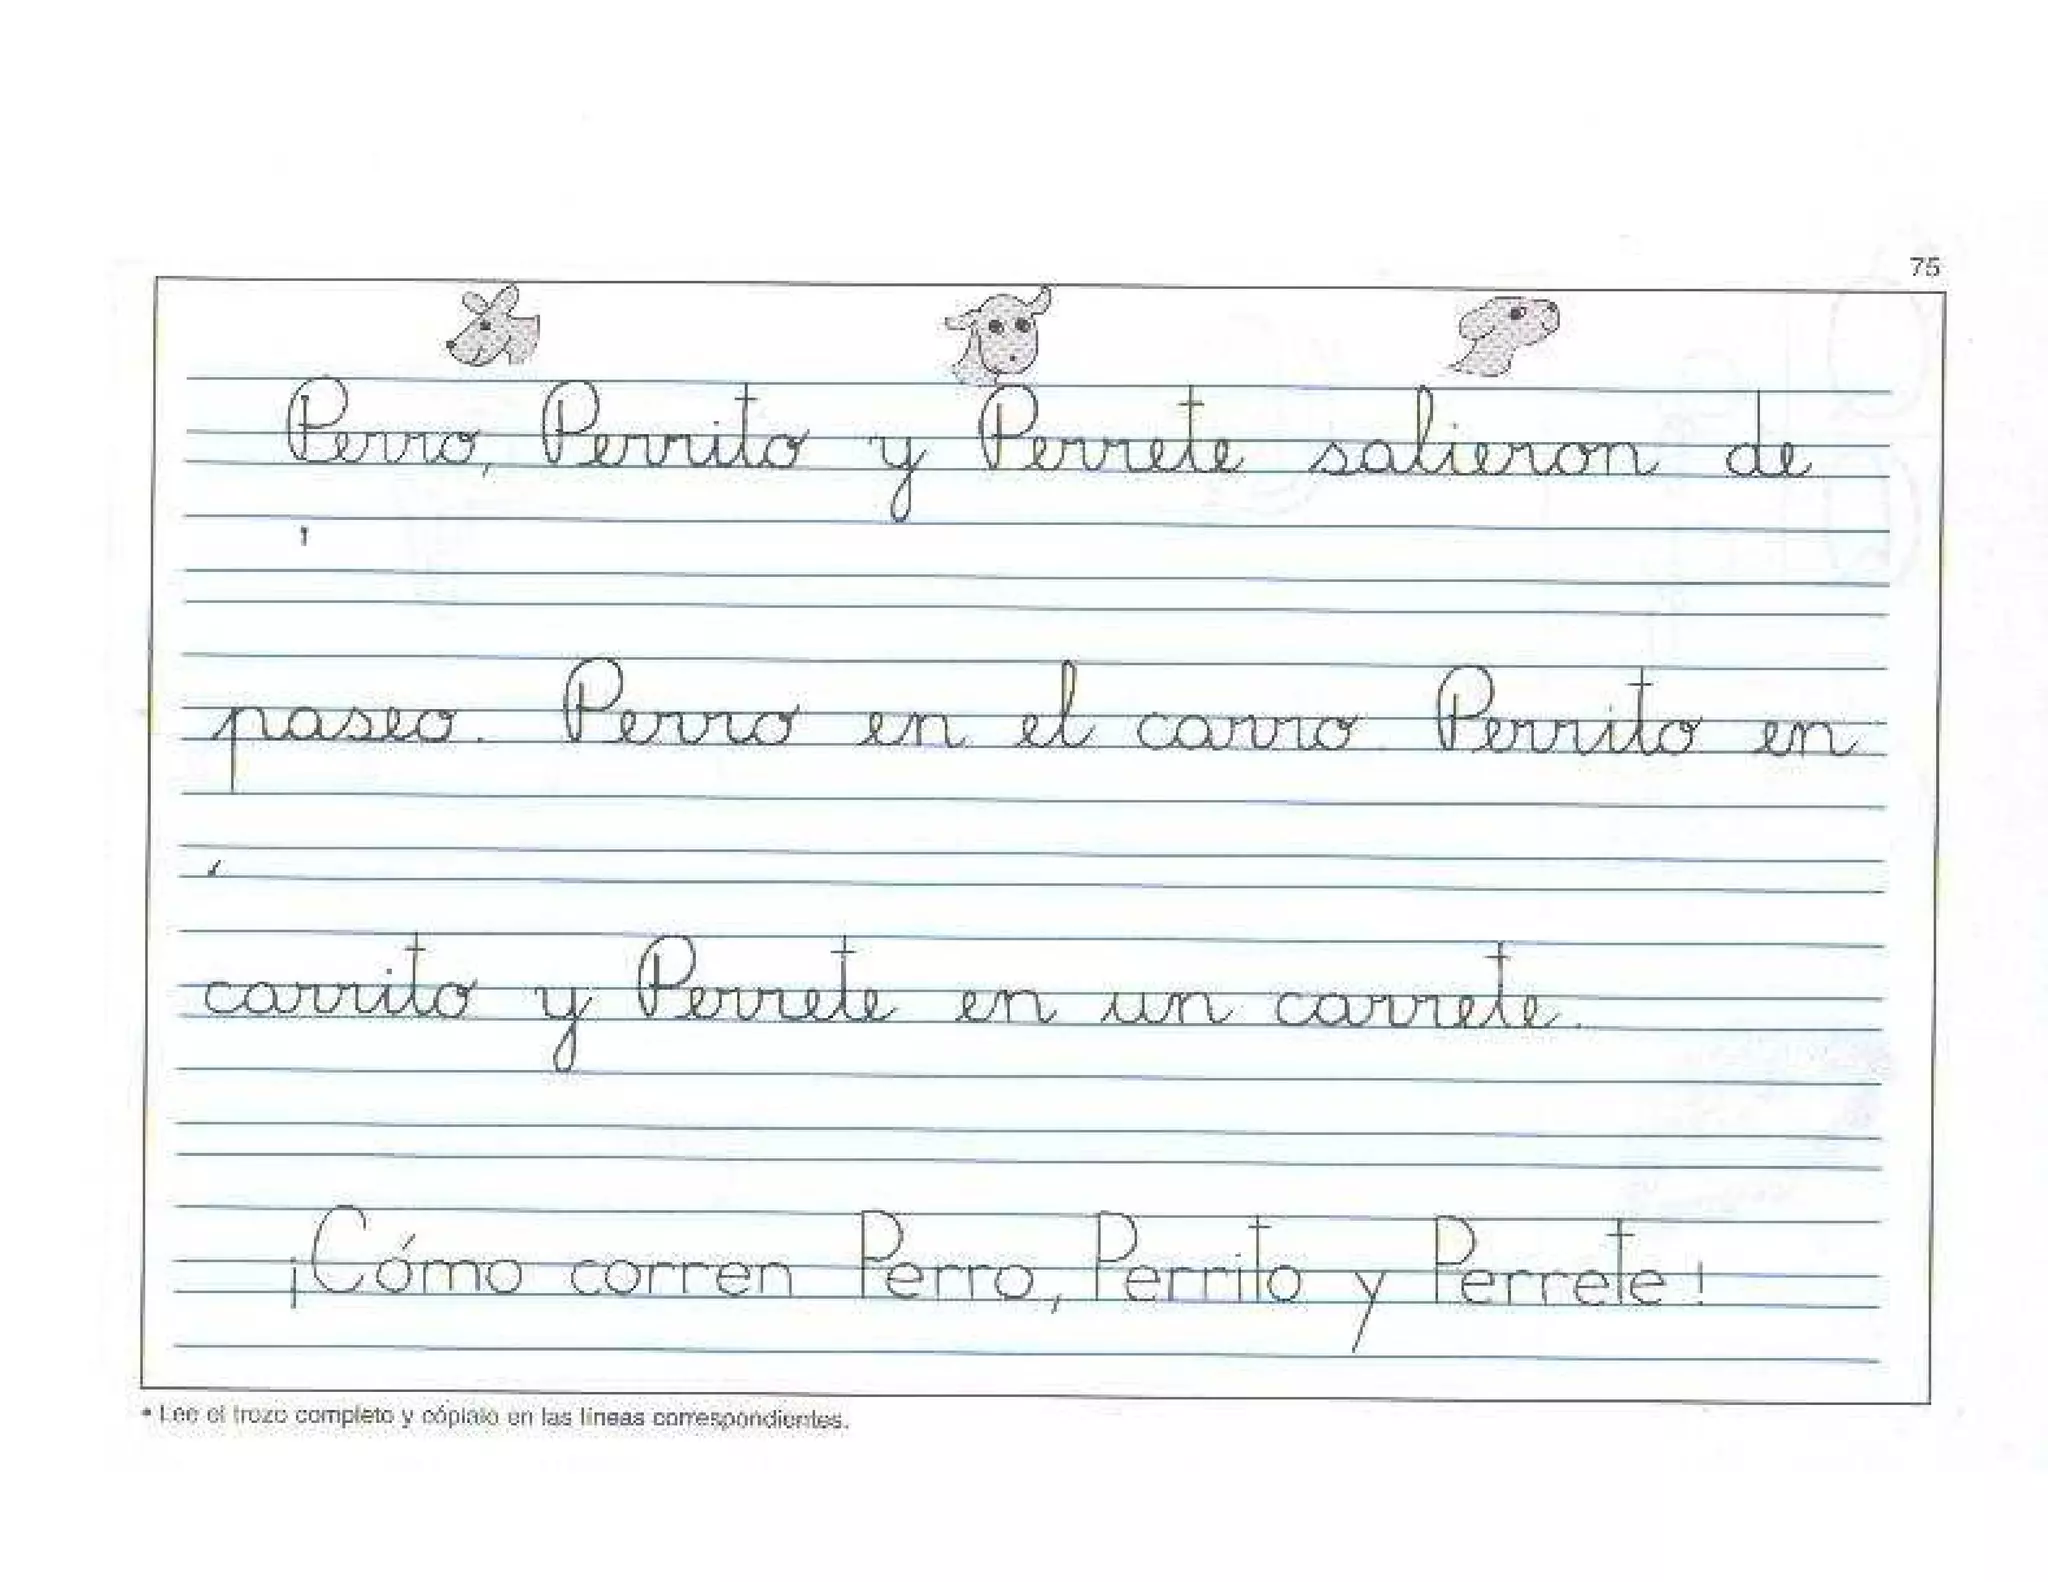 75
Perro, Perrito y Perrete salieron de
paseo. Perro en el carro. Perrito en
carrito y Perrete en un carrete.
¡Cómo corren Perro, Perrito y Perrete!
• Lee el trozo completo y cópialo en las líneas correspondientes.